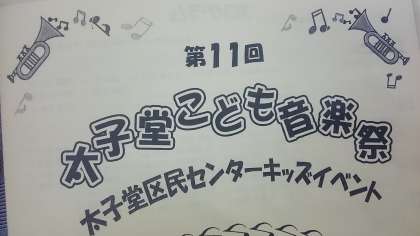 第11回
太子堂こども音楽祭
太子堂区民センターキッズイベント